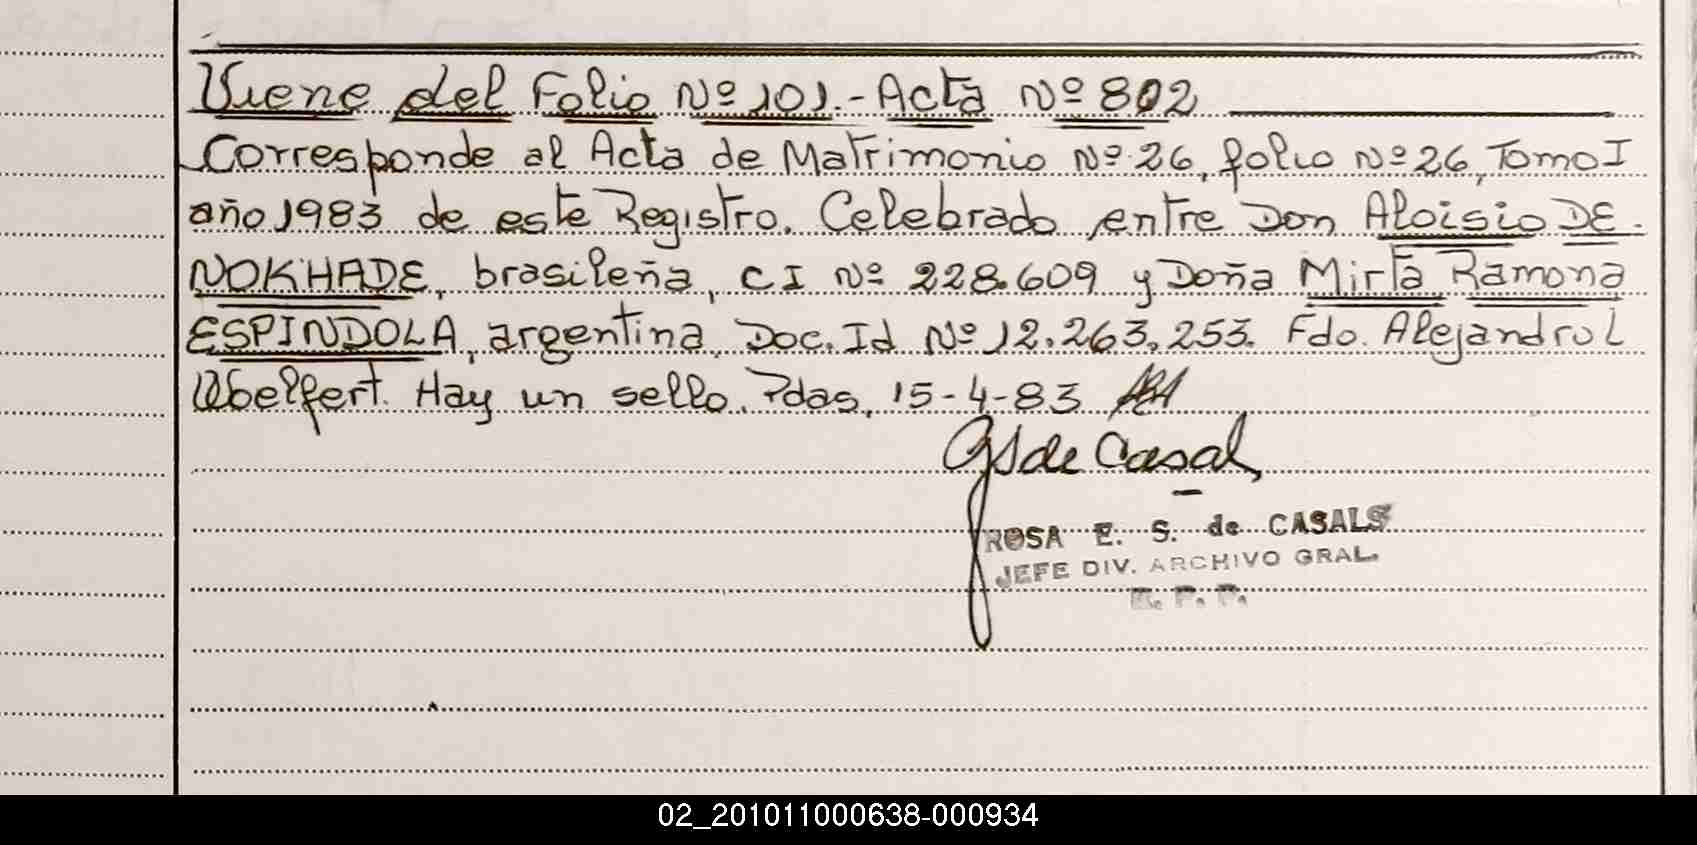 Viene del Folio Nº 101.- Acta Nº 802
Corresponde al Acta de Matrimonio Nº 26, folio Nº 26, Tomo I
año 1983 de este Registro. Celebrado entre Don Aloisio DE
NOKHADE, brasileña, CI Nº 228.609 y Doña Mirta Ramona
ESPINDOLA, argentina, Doc. Id Nº 12.263.253. Fdo. Alejandro L
Hay un sello. Pdas, 15-4-83
de Casal
ROSA E. S. de CASALS
JEFE DIV. ARCHIVO GRAL.
R. P. P.
02_201011000638-000934